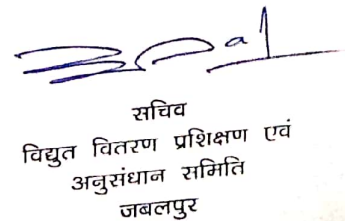 सचिव
विद्युत वितरण प्रशिक्षण एवं
अनुसंधान समिति
जबलपुर